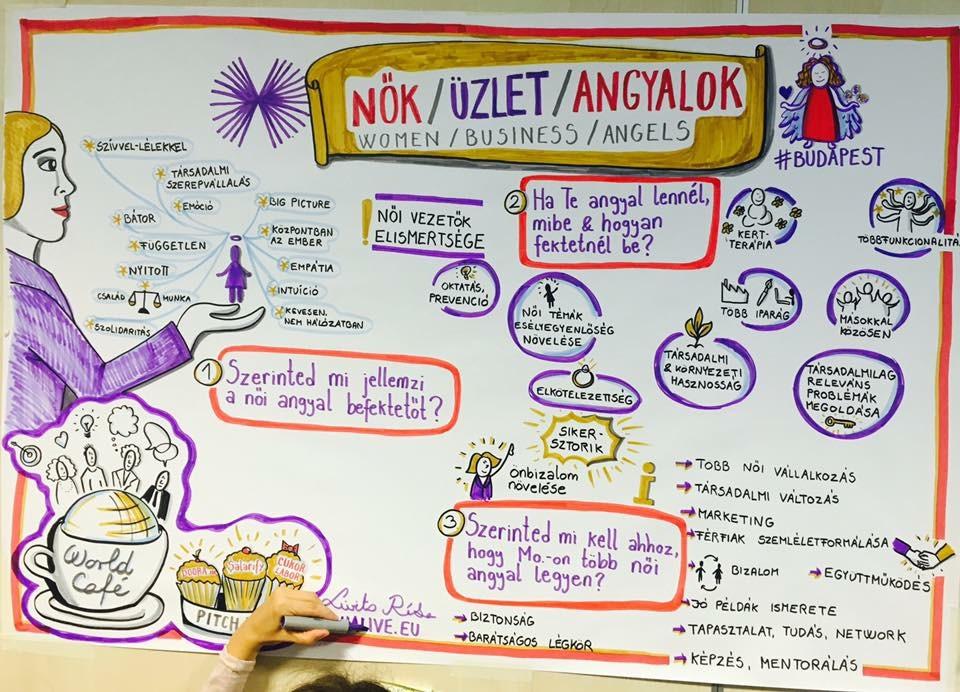 NŐK / ÜZLET / ANGYALOK
WOMEN / BUSINESS / ANGELS
#BUDAPEST
SZÍVVEL-LÉLEKKEL
TÁRSADALMI
SZEREPVÁLLALÁS
EMÓCIÓ
BÁTOR
FÜGGETLEN
NYITOTT
CSALÁD MUNKA
SZOLIDARITÁS
BIG PICTURE
KÖZPONTBAN
AZ EMBER
EMPÁTIA
INTUÍCIÓ
KEVESEN,
NEM HÁLÓZATBAN
1 Szerinted mi jellemzi
a női angyal befektetőt?
! NŐI VEZETŐK
ELISMERTSÉGE
2 Ha Te angyal lennél,
mibe & hogyan
fektetnél be?
KERT-
TERÁPIA
TÖBBFUNKCIONALITÁS
OKTATÁS,
PREVENCIÓ
NŐI TÉMÁK
ESÉLYEGYENLŐSÉG
NÖVELÉSE
TÖBB IPARÁG
MÁSOKKAL
KÖZÖSEN
TÁRSADALMI
& KÖRNYEZETI
HASZNOSSÁG
TÁRSADALMILAG
RELEVÁNS
PROBLÉMÁK
MEGOLDÁSA
ELKÖTELEZETTSÉG
SIKER-
SZTORIK
önbizalom
növelése
i
3 Szerinted mi kell ahhoz,
hogy Mo.-on több női
angyal legyen?
TÖBB NŐI VÁLLALKOZÁS
TÁRSADALMI VÁLTOZÁS
MARKETING
FÉRFIAK SZEMLÉLETFORMÁLÁSA
BIZALOM
EGYÜTTMŰKÖDÉS
JÓ PÉLDÁK ISMERETE
TAPASZTALAT, TUDÁS, NETWORK
KÉPZÉS, MENTORÁLÁS
BIZTONSÁG
BARÁTSÁGOS LÉGKÖR
World
Café
Salarify
CUKOR
TÁBOR
PITCH
LIVE.EU